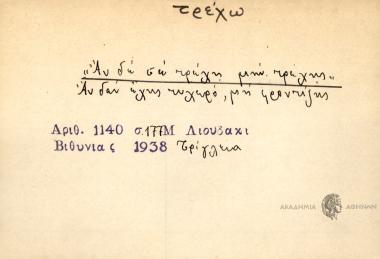 τρέχω
„Ἂν δὲ σὲ τρέχῃ μὴν τρέχῃς“
Ἂν δὲν ἔχῃς τυχερό, μὴ φροντίζῃς
Αριθ. 1140 σ.177 Μ Λιουδακι
Βιθυνιας 1938 Τρίγλεια
ΑΚΑΔΗΜΙΑ ΑΘΗΝΩΝ